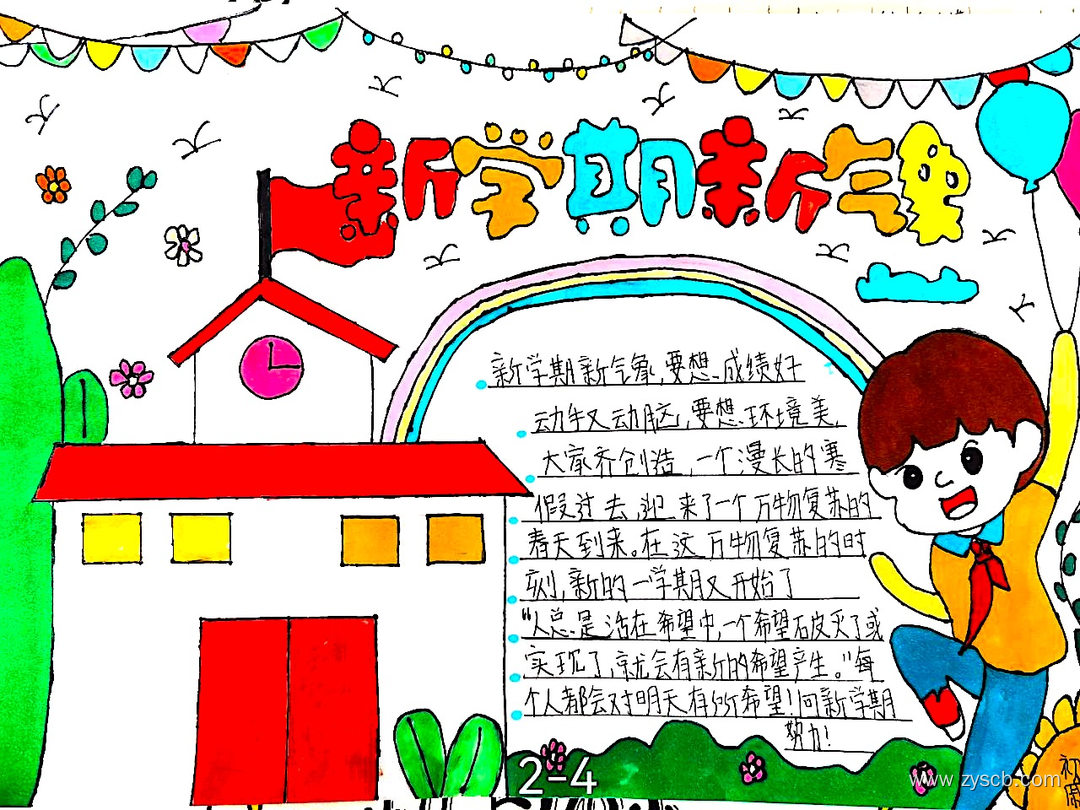 新学期新气象
新学期新气象,要想成绩好
动手又动脑,要想环境美,
大家齐创造,一个漫长的寒
假过去,迎来了一个万物复苏的
春天到来。在这万物复苏的时
刻,新的一学期又开始了
"人总是活在希望中,一个希望破灭了或
实现了,就会有新的希望产生。"每
个人都会对明天有所希望!向新学期
努力!
2-4
www.zyscb.com